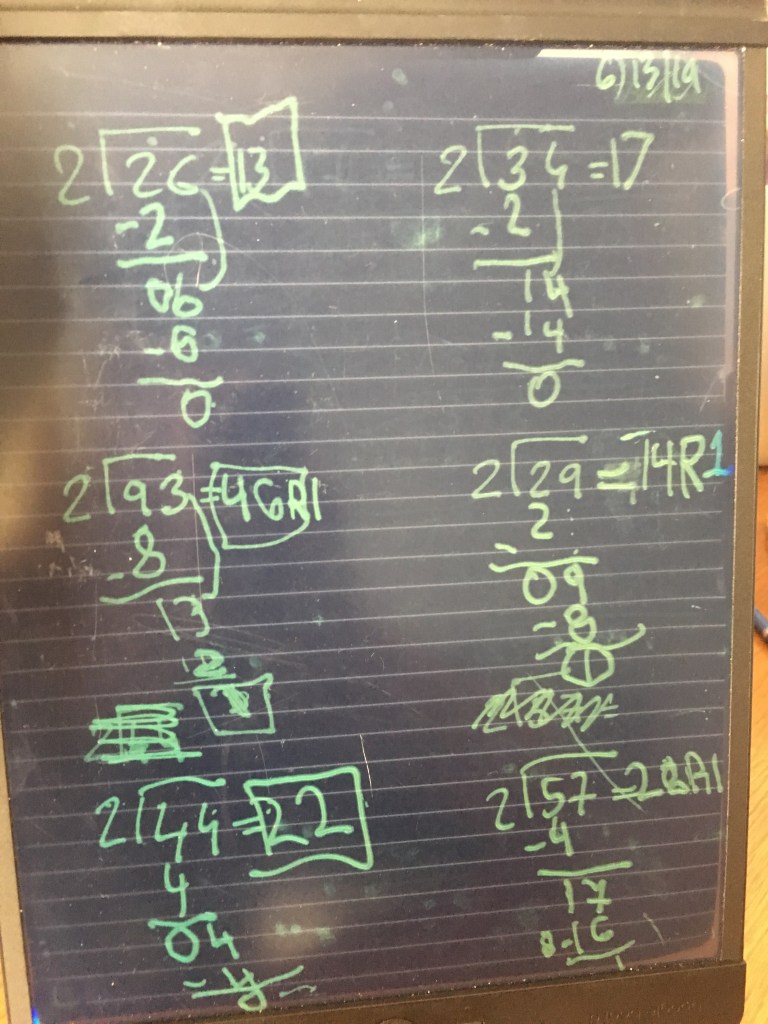 6/13/19
2⟌26 = 13
-2
06
-6
0
2⟌34 = 17
-2
14
-14
0
2⟌93 = 46R1
-8
13
12
1
2⟌29 = 14R1
2
-
09
-8
1
2⟌44 = 22
4
04
-4
0
2⟌57 = 28R1
-4
17
-16
1